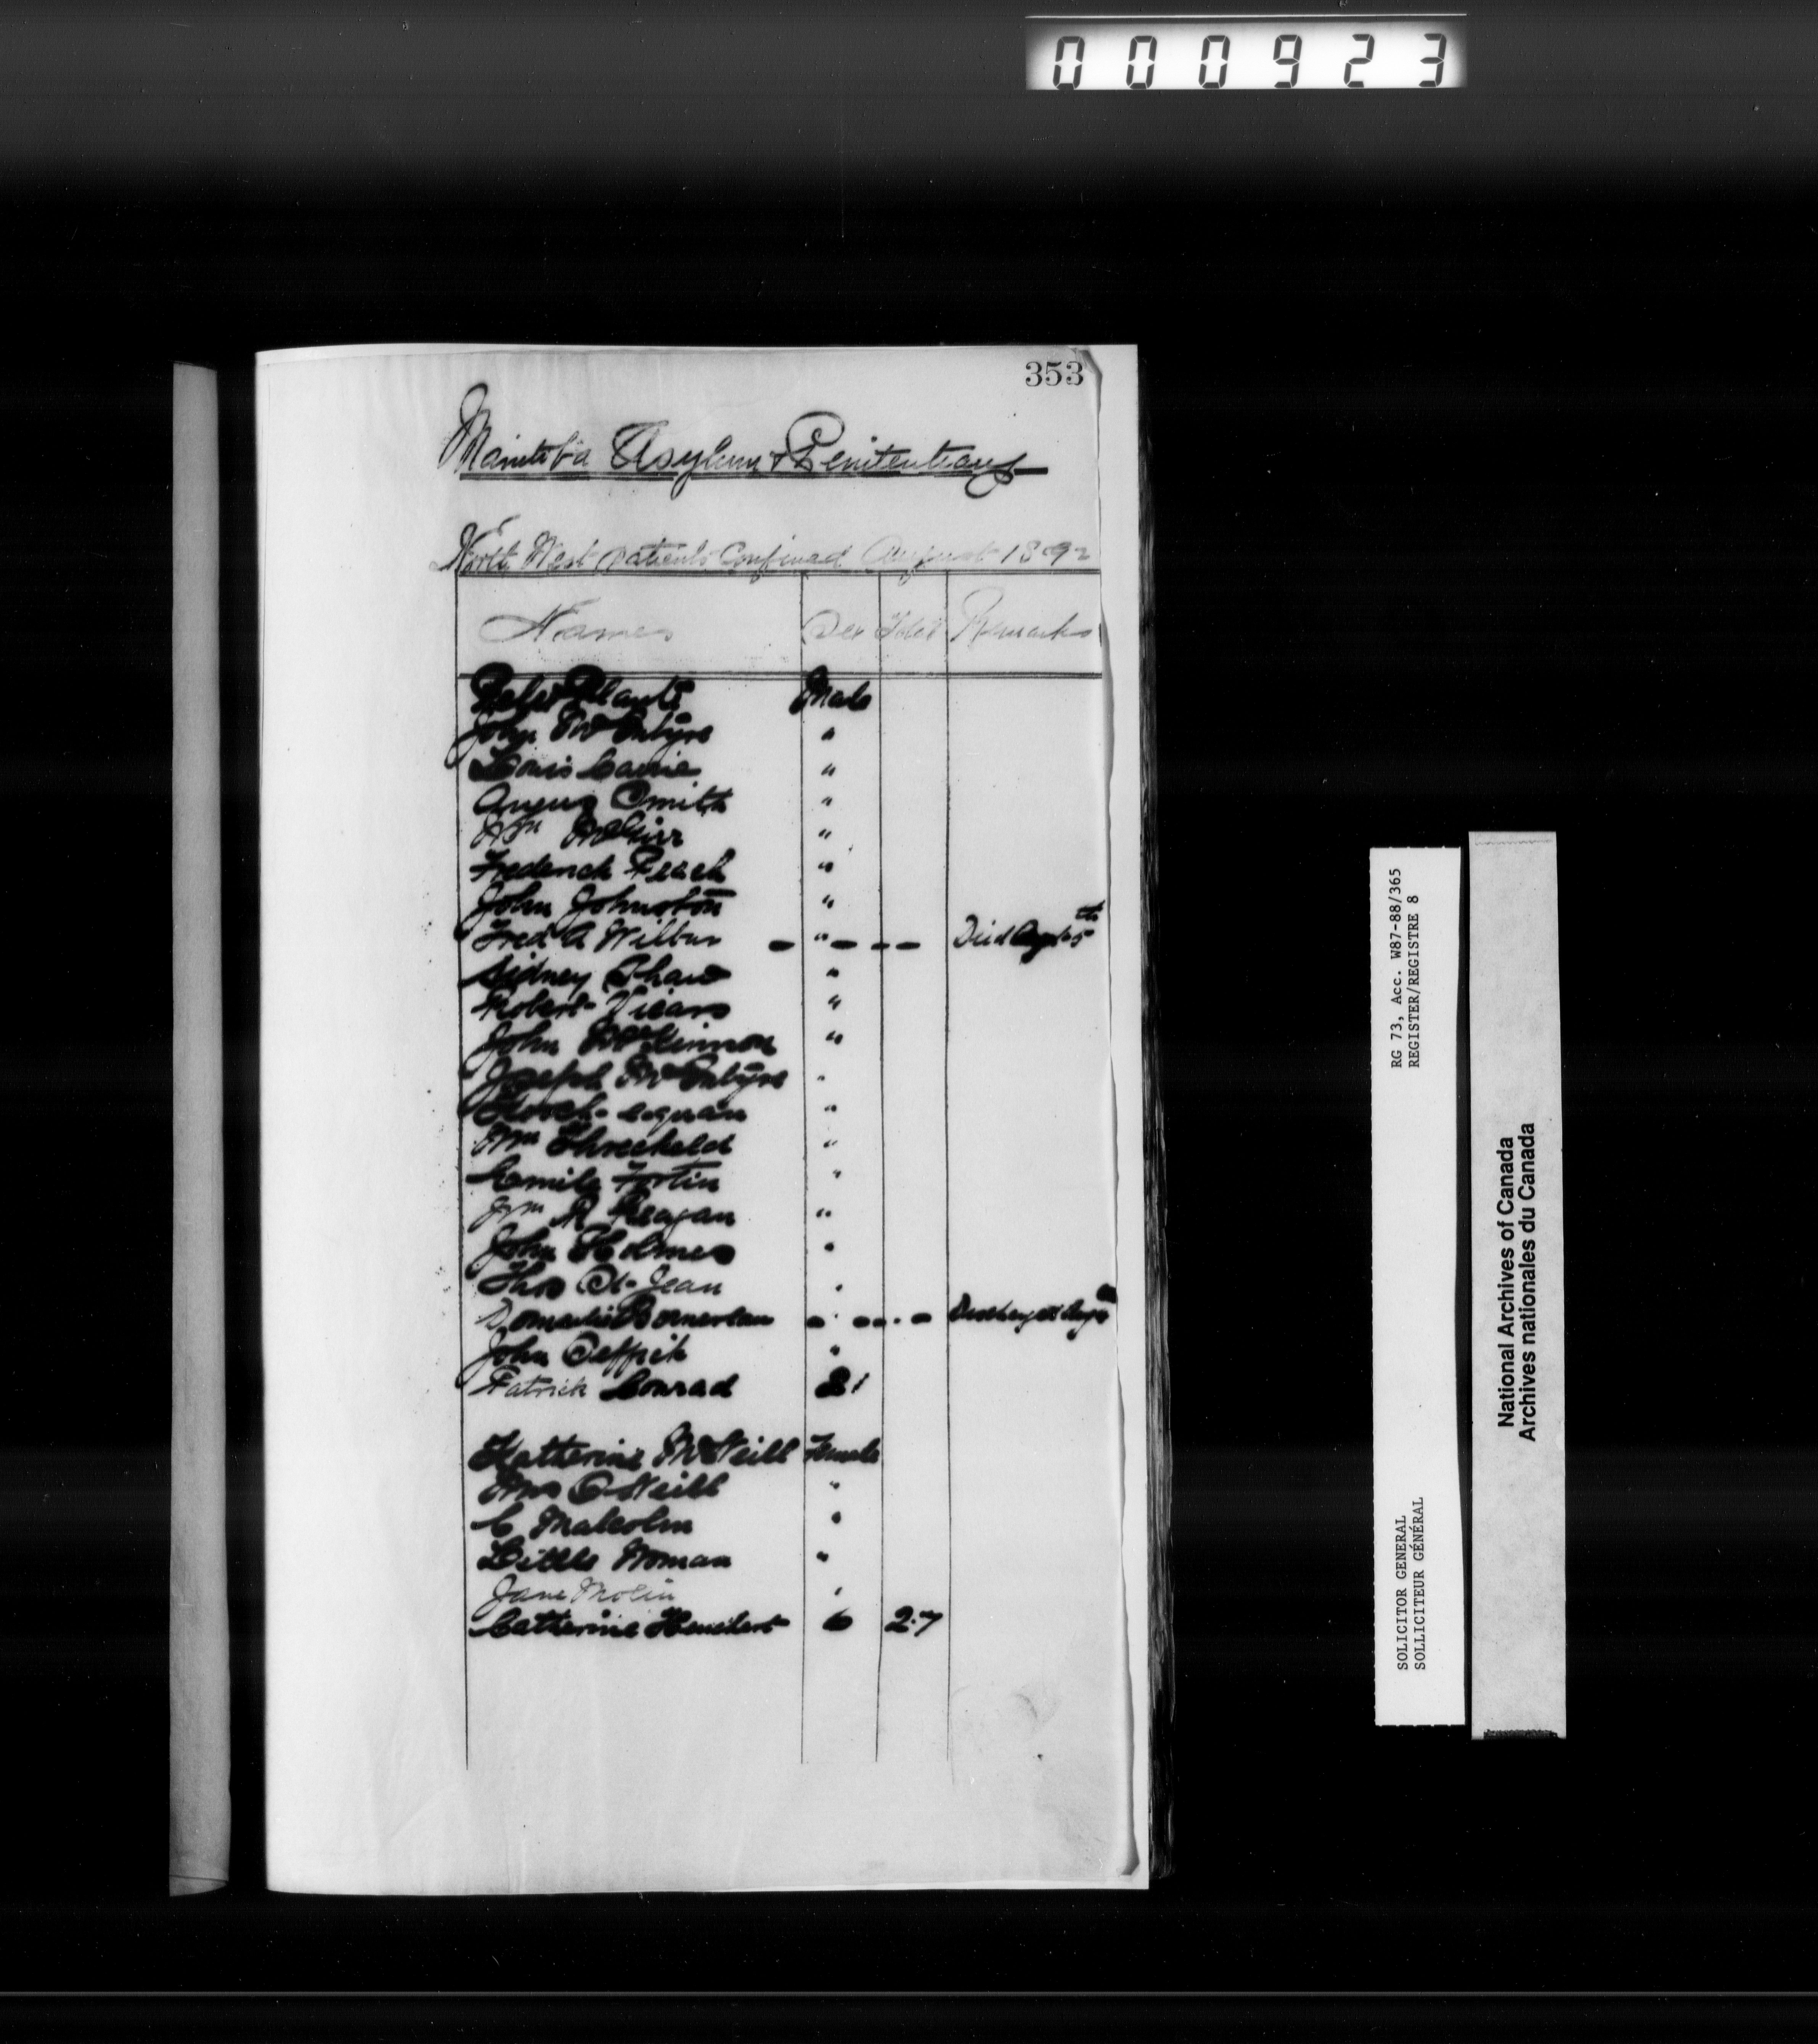 000923
353
Manitoba Asylum & Penitentiary
North West patients Confined August 1892
Names Sex Total Remarks
Peter Plante Male
John McIntyre "
Louis "
Angus Smith "
Wm "
Frederick Peach "
John Johnston "
Fred A Wilbur - " - - - Died Augst 5th
Sidney Shaw "
Robert Vicars "
John McKinnon "
Joseph McIntyre "
"
Wm Threekeld "
Camile Fortin "
Wm R Reagan "
John Holmes "
Thos St Jean "
- " - - - Discharged Augst
John "
Patrick Conrad 21
Katherine McNeill Female
Mrs O'Neill "
C Malcolm "
Little Woman "
Jane Molin "
Catherine 6 27
RG 73, Acc. W87-88/365
REGISTER/REGISTRE 8
SOLICITOR GENERAL
SOLLICITEUR GÉNÉRAL
National Archives of Canada
Archives nationales du Canada